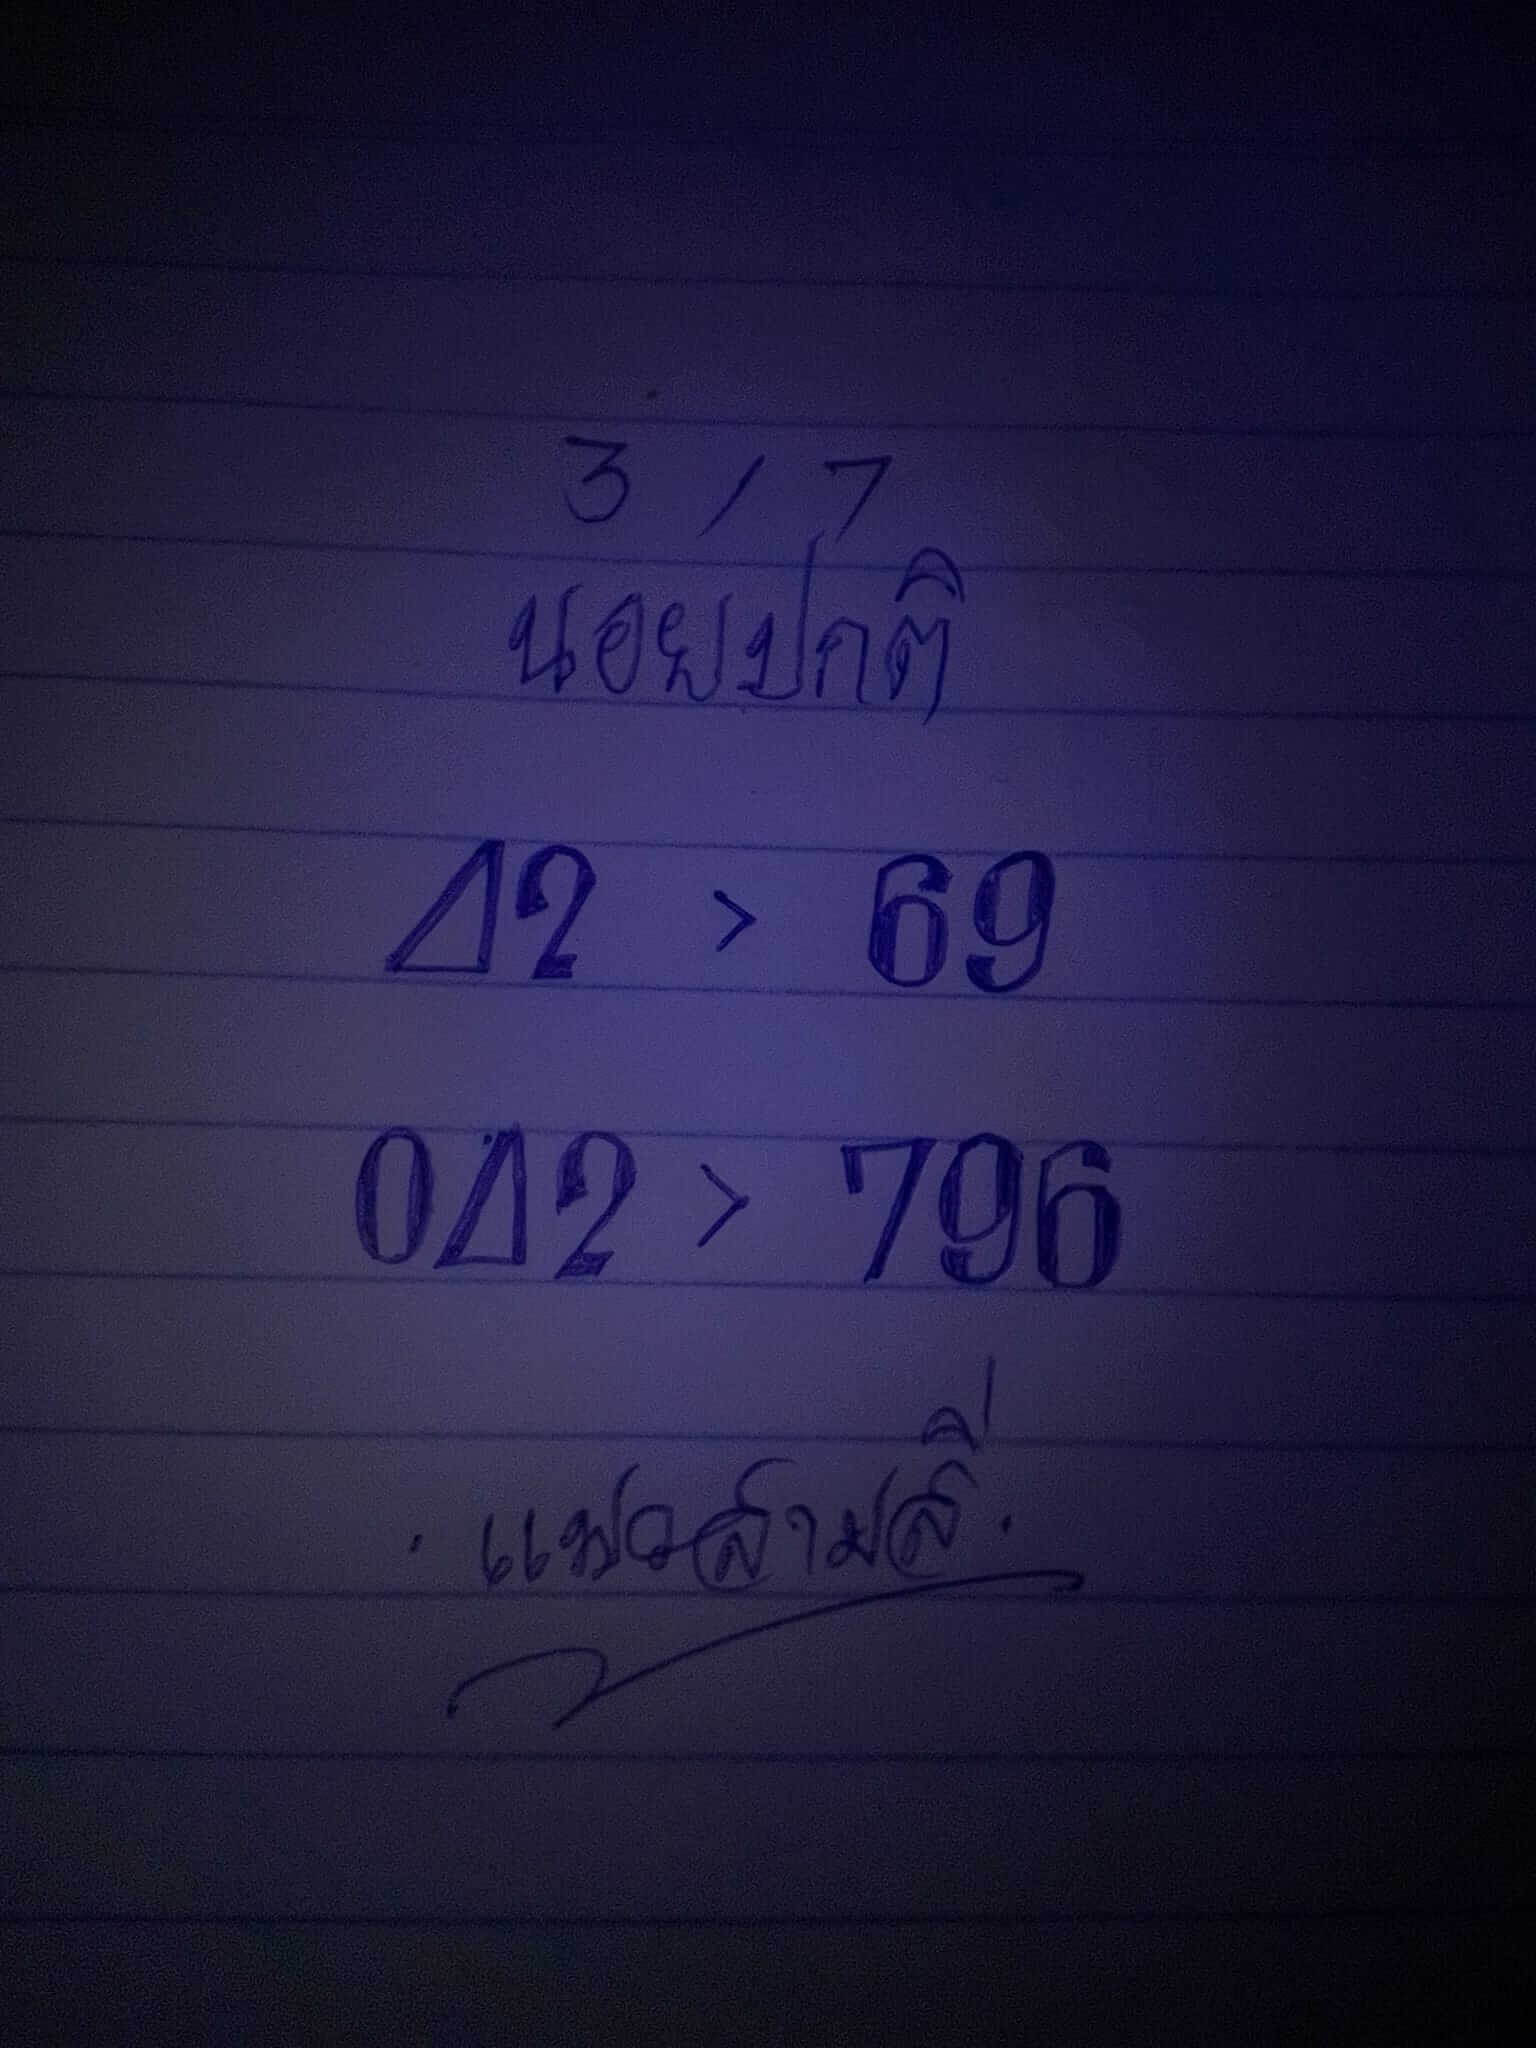 3 / 7
นอยปกติ
42 > 69
042 > 796
. แมวสามสี่ .